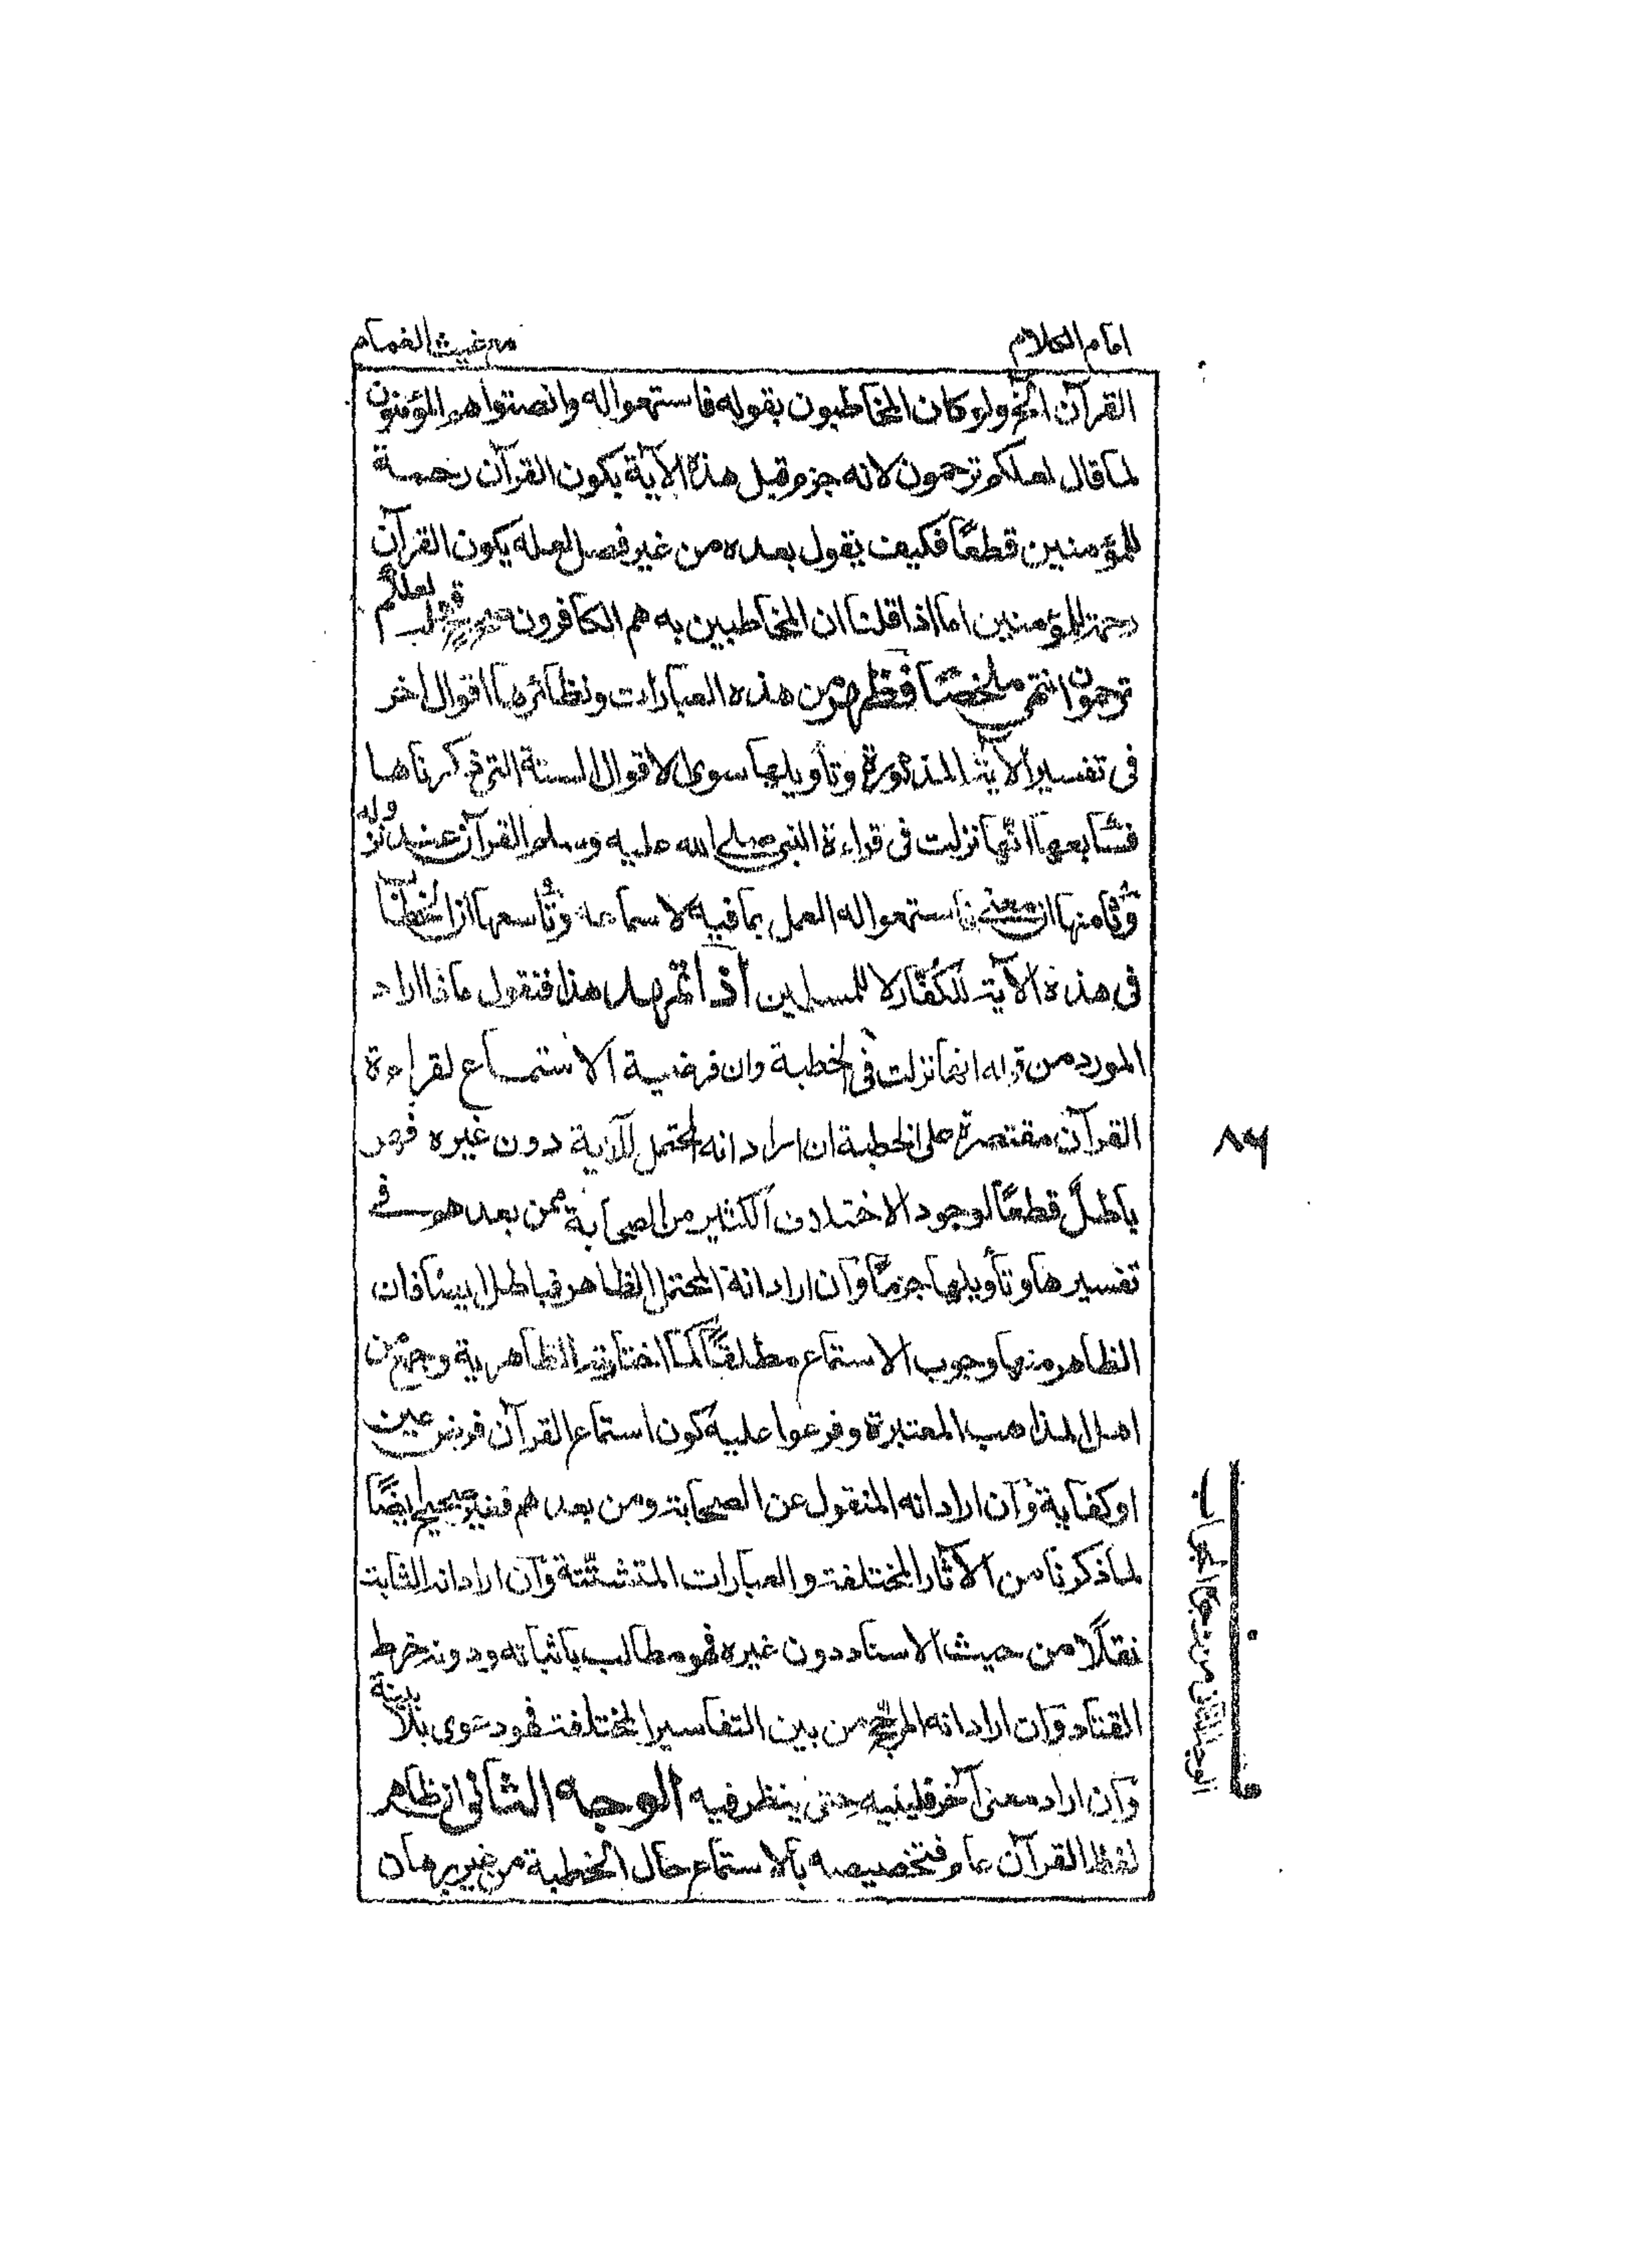 امام الكلام
مع غيث الغمام
القرآن الخ ولو كان المخاطبون بقوله فاستمعوا له وانصتوا هم المؤمنون
لما قال لعلكم ترحمون لانه جزم قبل هذه الآية بكون القرآن رحمة
للمؤمنين قطعًا فكيف يقول بعده من غير فصل لعله يكون القرآن
رحمة للمؤمنين اما اذا قلنا ان المخاطبين به هم الكافرون صح قوله لعلكم
ترحمون انتهى ملخصًا فظهر من هذه العبارات ونظائرها اقوال اخر
فى تفسير الآية المذكورة وتأويلها سوى الاقوال الستة التى ذكرناها
فسابعها انها نزلت فى قراءة النبى صلى الله عليه وسلم القرآن عند نزوله
وثامنها ان معنى فاستمعوا له العمل بما فيه لا سماعه وتاسعها ان الخطاب
فى هذه الآية للكفار لا للمسلمين اذا تمهد هذا فنقول ماذا اراد
المورد من قوله انها نزلت فى الخطبة وان فرضية الاستماع لقراءة
القرآن مقتصرة على الخطبة ان اراد انه المحتمل للآية دون غيره فهو
باطل قطعًا لوجود الاختلاف الكثير من الصحابة ومن بعدهم فى
تفسيرها وتأويلها جزمًا وان اراد انه المحتمل الظاهر فباطل ايضًا فان
الظاهر منها وجوب الاستماع مطلقًا كما اختارته الظاهرية وجمع من
اهل المذاهب المعتبرة وفرعوا عليه كون استماع القرآن فرض عين
او كفاية وان اراد انه المنقول عن الصحابة ومن بعدهم فغير صحيح ايضًا
لما ذكرنا من الآثار المختلفة والعبارات المتشتتة وان اراد انه الثابت
نقلًا من حيث الاسناد دون غيره فهو مطالب باثباته ودونه خرط
القتاد وان اراد انه المرجح من بين التفاسير المختلفة فهو دعوى بلا بينة
وان اراد معنى آخر فليبينه حتى ينظر فيه الوجه الثانى ان ظاهر
لفظ القرآن عام فتخصيصه بالاستماع حال الخطبة من غير برهان
٨٦
الوجه الثانى من